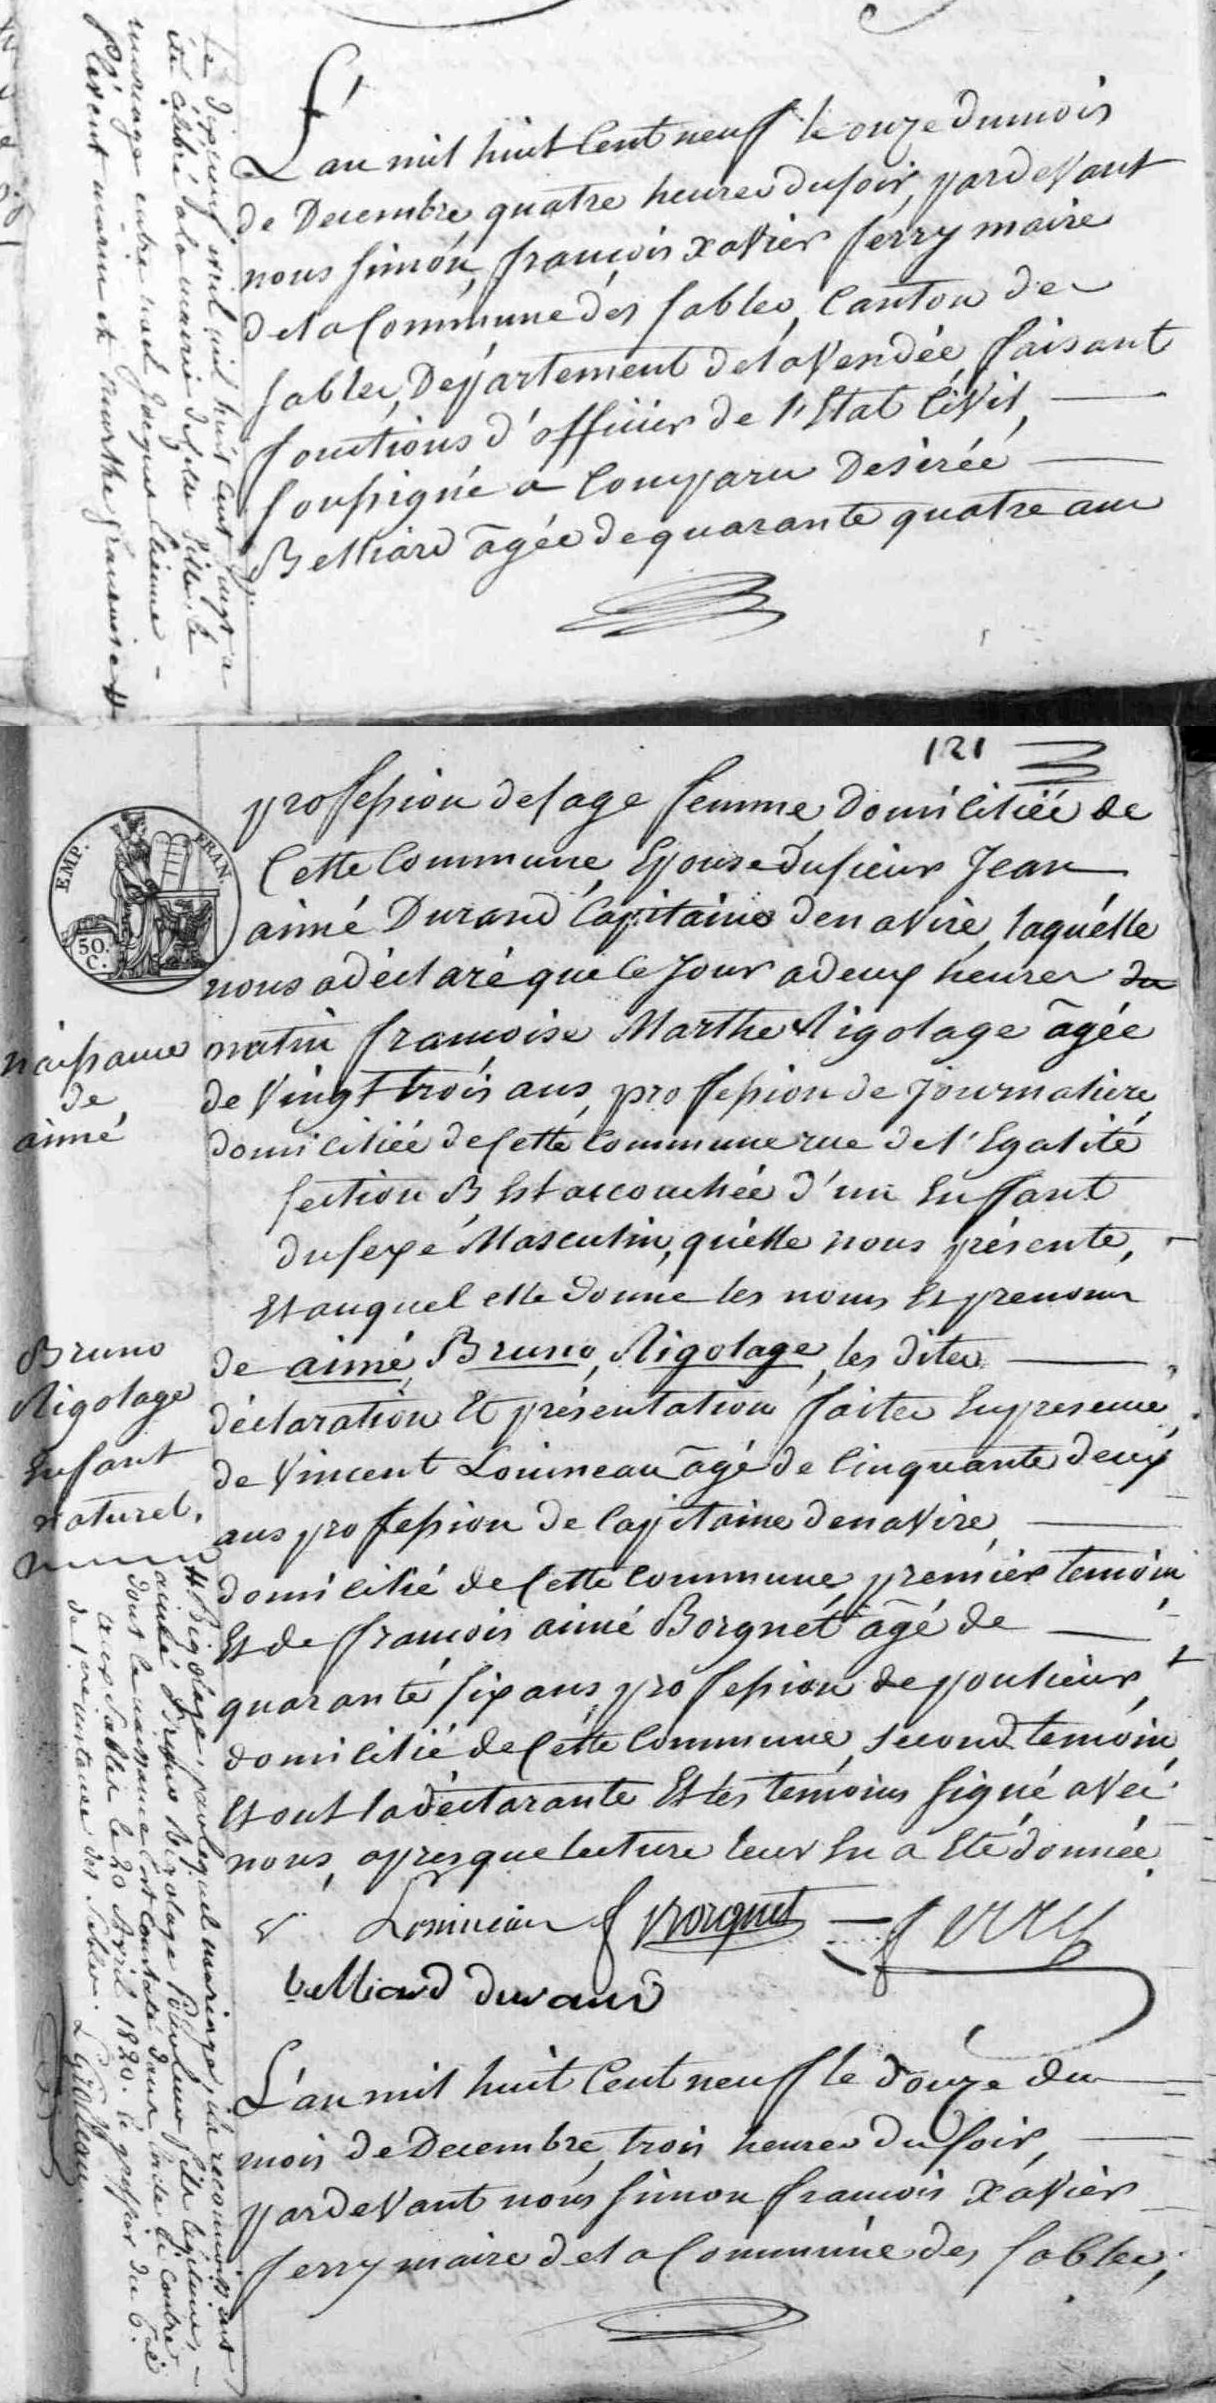 L'an mil huit Cent neuf le onze du mois
de Decembre, quatre heures du soir, pardevant
nous Simon, françois xavier ferry maire
de la Commune des sables, Canton des
sables, Département de la Vendée, faisant
fonctions d'officier de l'Etat Civil,
soussigné a Comparu Desirée
Belliard âgée de quarante quatre ans
Le dix neuf avril mil huit cent vingt a
été célébré à la mairie de cette ville, le
mariage entre noel Jacques Etienne
Plesent marin et marthe françoise #
121
profession de sage femme, domiciliée de
Cette Commune, Epouse du sieur Jean
aimé Durand Capitaine de navire, laquélle
nous a déclaré que le Jour a deux heures du
matin françoise Marthe Rigolage âgée
de Vingt trois ans, profession de Journaliere
domiciliée de Cette Commune rue de l'Egalité
section B Est accouchée d'un Enffant
du sexe Masculin, qu'elle nous présente,
Et auquel elle donne les noms Et prenoms
de aimé, Bruno, Rigolage, les dites
déclaration Et présentation faites En presence,
de Vincent Louineau âgé de Cinquante deux
ans profession de Capitaine de navire,
domicilié de Cette Commune, premier temoin
Et de françois aimé Borgnét âgé de
quarante six ans, profession de poulieur,
domicilié de Cétte Commune, second temoin,
Et ont la déclarante Et les temoins signé avec
nous, apres que lecture leur En a Eté donnée.
EMP. FRAN.
50. C.
naissance
de
aimé
Bruno
Rigolage
Enfant
naturel.
# Rigolage, par lequel mariage, ils reconnoissent
aimé Bruno Rigolage pour leur fils légitime,
dont la naissance est constatée dans l'acte ci contre
aux Sables le 20 Avril 1820. le greffier du t.al
de 1.ere instance des Sables.
V. Louineau f Borgnet ferry
belliard durand
L'an mil huit Cent neuf le douze du
mois de Decembre, trois heures du soir,
pardevant nous simon françois xavier
ferry maire de la Commune des sables,